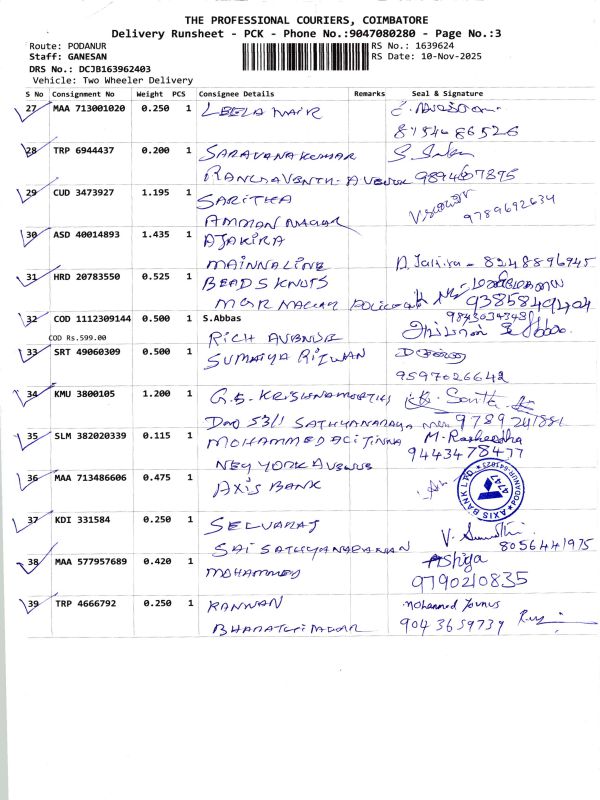 THE PROFESSIONAL COURIERS, COIMBATORE
Delivery Runsheet - PCK - Phone No.:9047080280 - Page No.:3
Route: PODANUR RS No.: 1639624
Staff: GANESAN RS Date: 10-Nov-2025
DRS No.: DCJB163962403
Vehicle: Two Wheeler Delivery
S No Consignment No Weight PCS Consignee Details Remarks Seal & Signature
27 MAA 713001020 0.250 1 LEELA NAIR
8754486526
28 TRP 6944437 0.200 1 SARAVANA KUMAR
9894607875
29 CUD 3473927 1.195 1 SARITHA
AMMAN NAGAR 9789692634
30 ASD 40014893 1.435 1 AJAKIRA
MAINNALINE 8248896945
31 HRD 20783550 0.525 1 BEADS KNOTS
MGR NAGAR 9385849404
32 COD 1112309144 0.500 1 S.Abbas 9843034348
COD Rs.599.00 RICH AVENUE
33 SRT 49060309 0.500 1 SUMAIYA RIZWAN
9597026642
34 KMU 3800105 1.200 1 G.E. KRISHNAMOORTHY
53/1 SATHYANARAYA 9789241881
35 SLM 382020339 0.115 1 MOHAMMED ALI JINNA M. Rasheedha
NEW YORK AVENUE 9443478477
36 MAA 713486606 0.475 1 AXIS BANK
AXIS BANK LTD. PODANUR-641023 4747
37 KDI 331584 0.250 1 SELVARAJ
SAI SATHYANARAYANAN 8056441975
38 MAA 577957689 0.420 1 MOHAMMED Ashiya
9790210835
39 TRP 4666792 0.250 1 RANWAN Mohammed Younus
BHARATHI NAGAR 9043659739